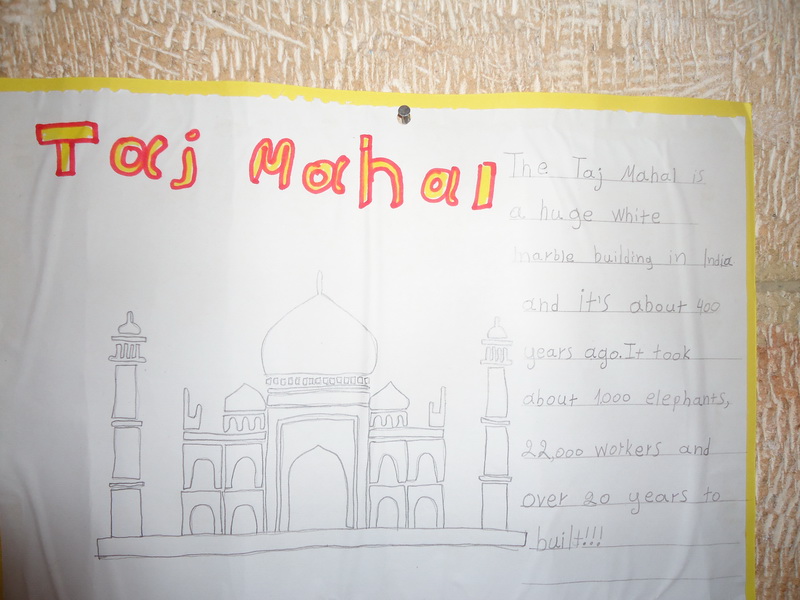 Taj Mahal
The Taj Mahal is
a huge white
marble building in India
and it's about 400
years ago. It took
about 1000 elephants,
22,000 workers and
over 20 years to
built!!!